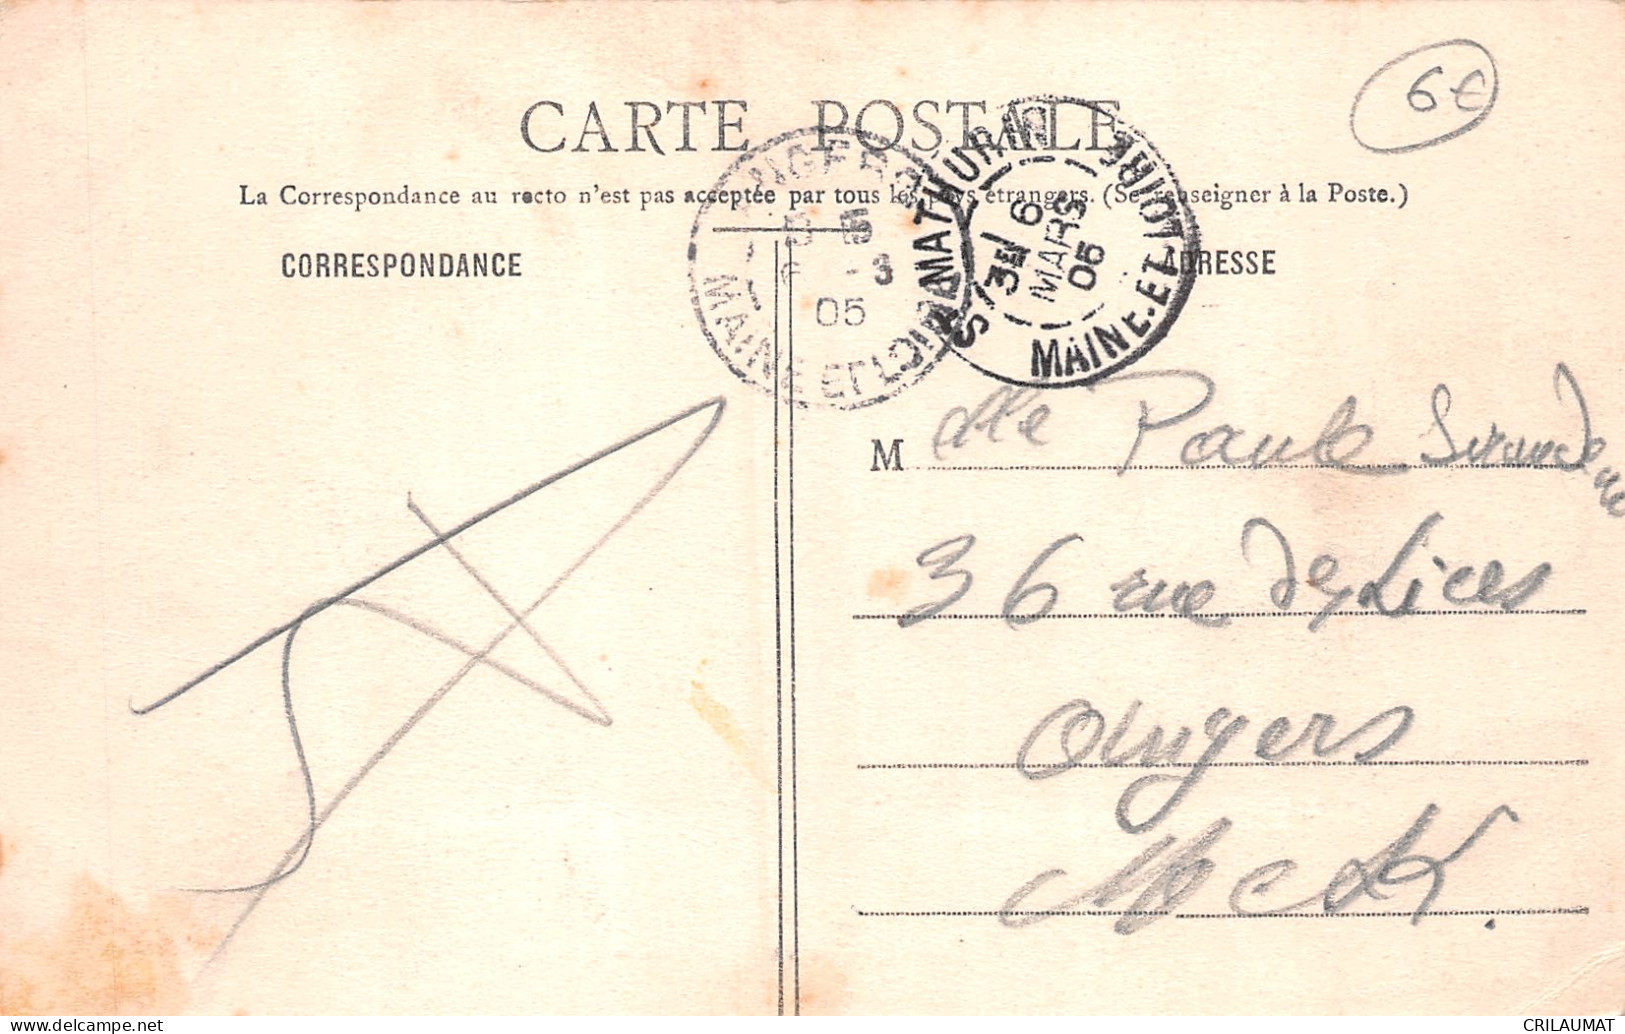 6€
CARTE POSTALE
La Correspondance au recto n'est pas acceptée par tous les pays étrangers. (Se renseigner à la Poste.)
CORRESPONDANCE
ADRESSE
ANGERS
6 -3
05
MAINE ET LOIRE
ST MATHURIN
3E
6
MARS
05
MAINE-ET-LOIRE
M lle Paule
36 rue des Lices
Angers
M et L.
CRILAUMAT